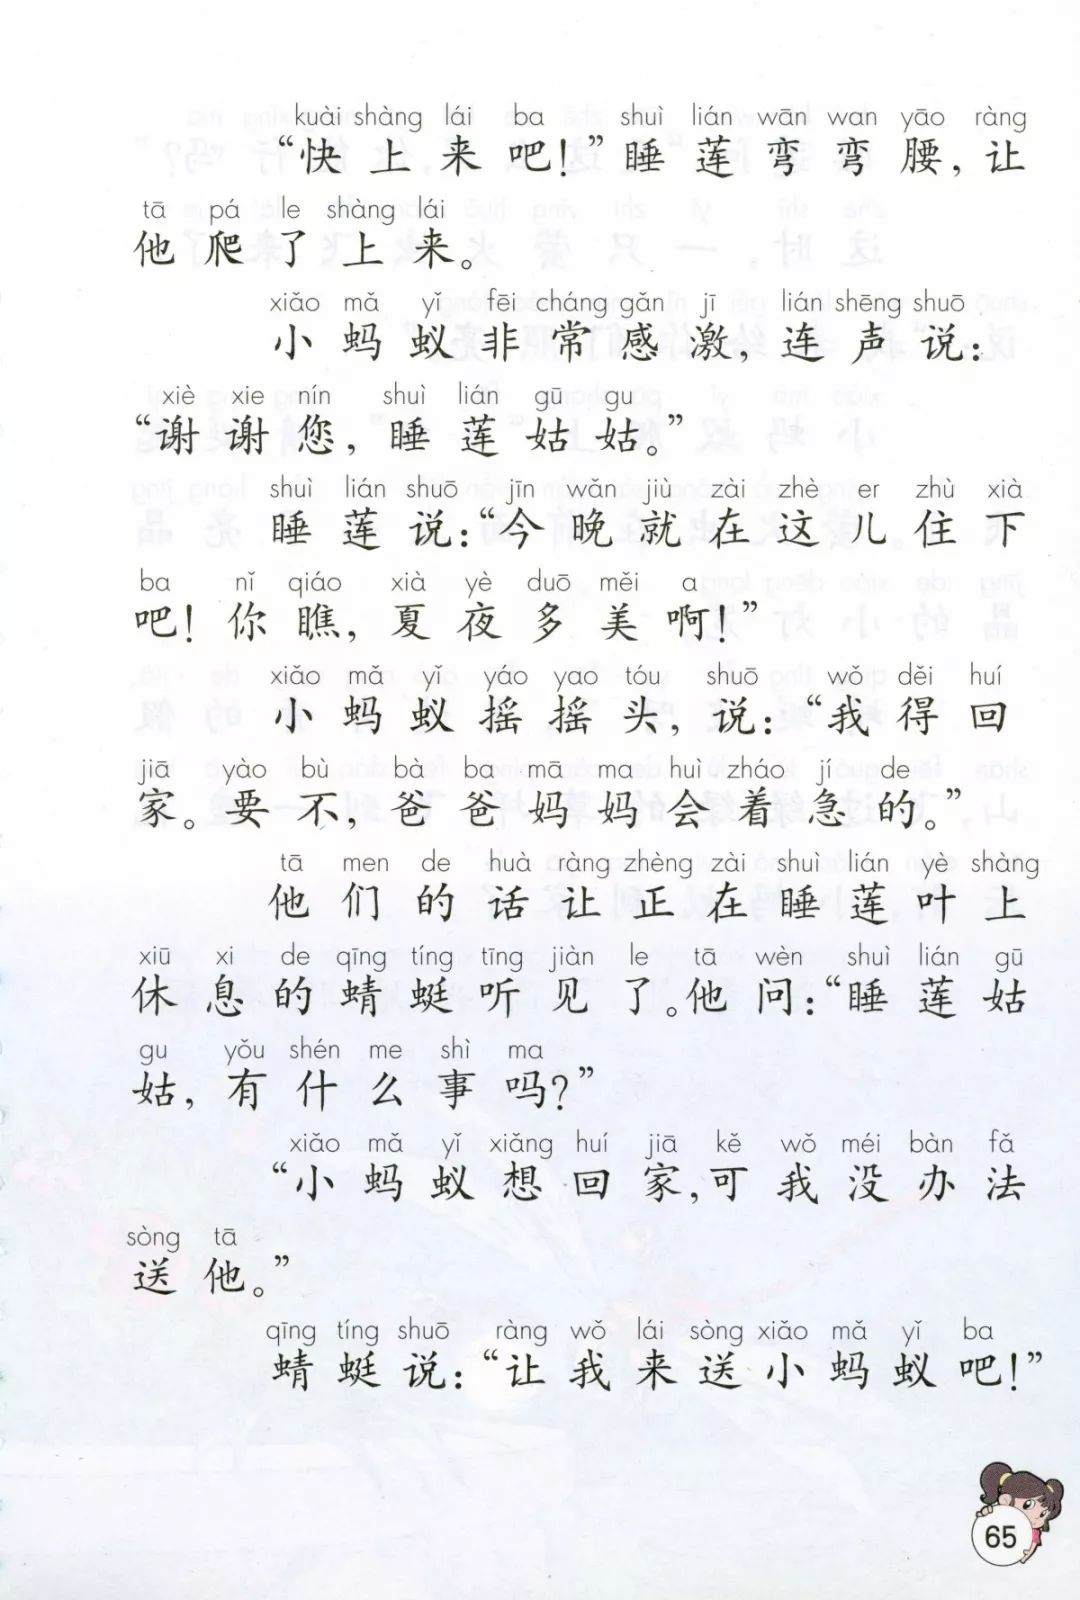 kuài shàng lái ba shuì lián wān wan yāo ràng
“快上来吧！”睡莲弯弯腰，让
tā pá le shàng lái
他爬了上来。
xiǎo mǎ yǐ fēi cháng gǎn jī lián shēng shuō
小蚂蚁非常感激，连声说：
xiè xie nín shuì lián gū gu
“谢谢您，睡莲姑姑。”
shuì lián shuō jīn wǎn jiù zài zhè er zhù xià
睡莲说：“今晚就在这儿住下
ba nǐ qiáo xià yè duō měi a
吧！你瞧，夏夜多美啊！”
xiǎo mǎ yǐ yáo yao tóu shuō wǒ děi huí
小蚂蚁摇摇头，说：“我得回
jiā yào bù bà ba mā ma huì zháo jí de
家。要不，爸爸妈妈会着急的。”
tā men de huà ràng zhèng zài shuì lián yè shàng
他们的话让正在睡莲叶上
xiū xi de qīng tíng tīng jiàn le tā wèn shuì lián gū
休息的蜻蜓听见了。他问：“睡莲姑
gu yǒu shén me shì ma
姑，有什么事吗？”
xiǎo mǎ yǐ xiǎng huí jiā kě wǒ méi bàn fǎ
“小蚂蚁想回家，可我没办法
sòng tā
送他。”
qīng tíng shuō ràng wǒ lái sòng xiǎo mǎ yǐ ba
蜻蜓说：“让我来送小蚂蚁吧！”
65